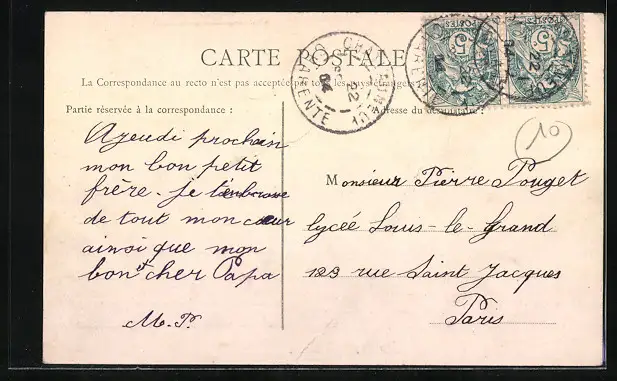 CARTE POSTALE
La Correspondance au recto n'est pas acceptée par tous les pays étrangers
Partie réservée à la correspondance :
Adresse du destinataire :
A jeudi prochain
mon bon petit
frère. je t'embrasse
de tout mon cœur
ainsi que mon
bon et cher Papa
M. P.
Monsieur Pierre Pouget
lycée Louis-le-Grand
123 rue Saint Jacques
Paris
CHARENTE
22
04
POSTES
5c
5c
10